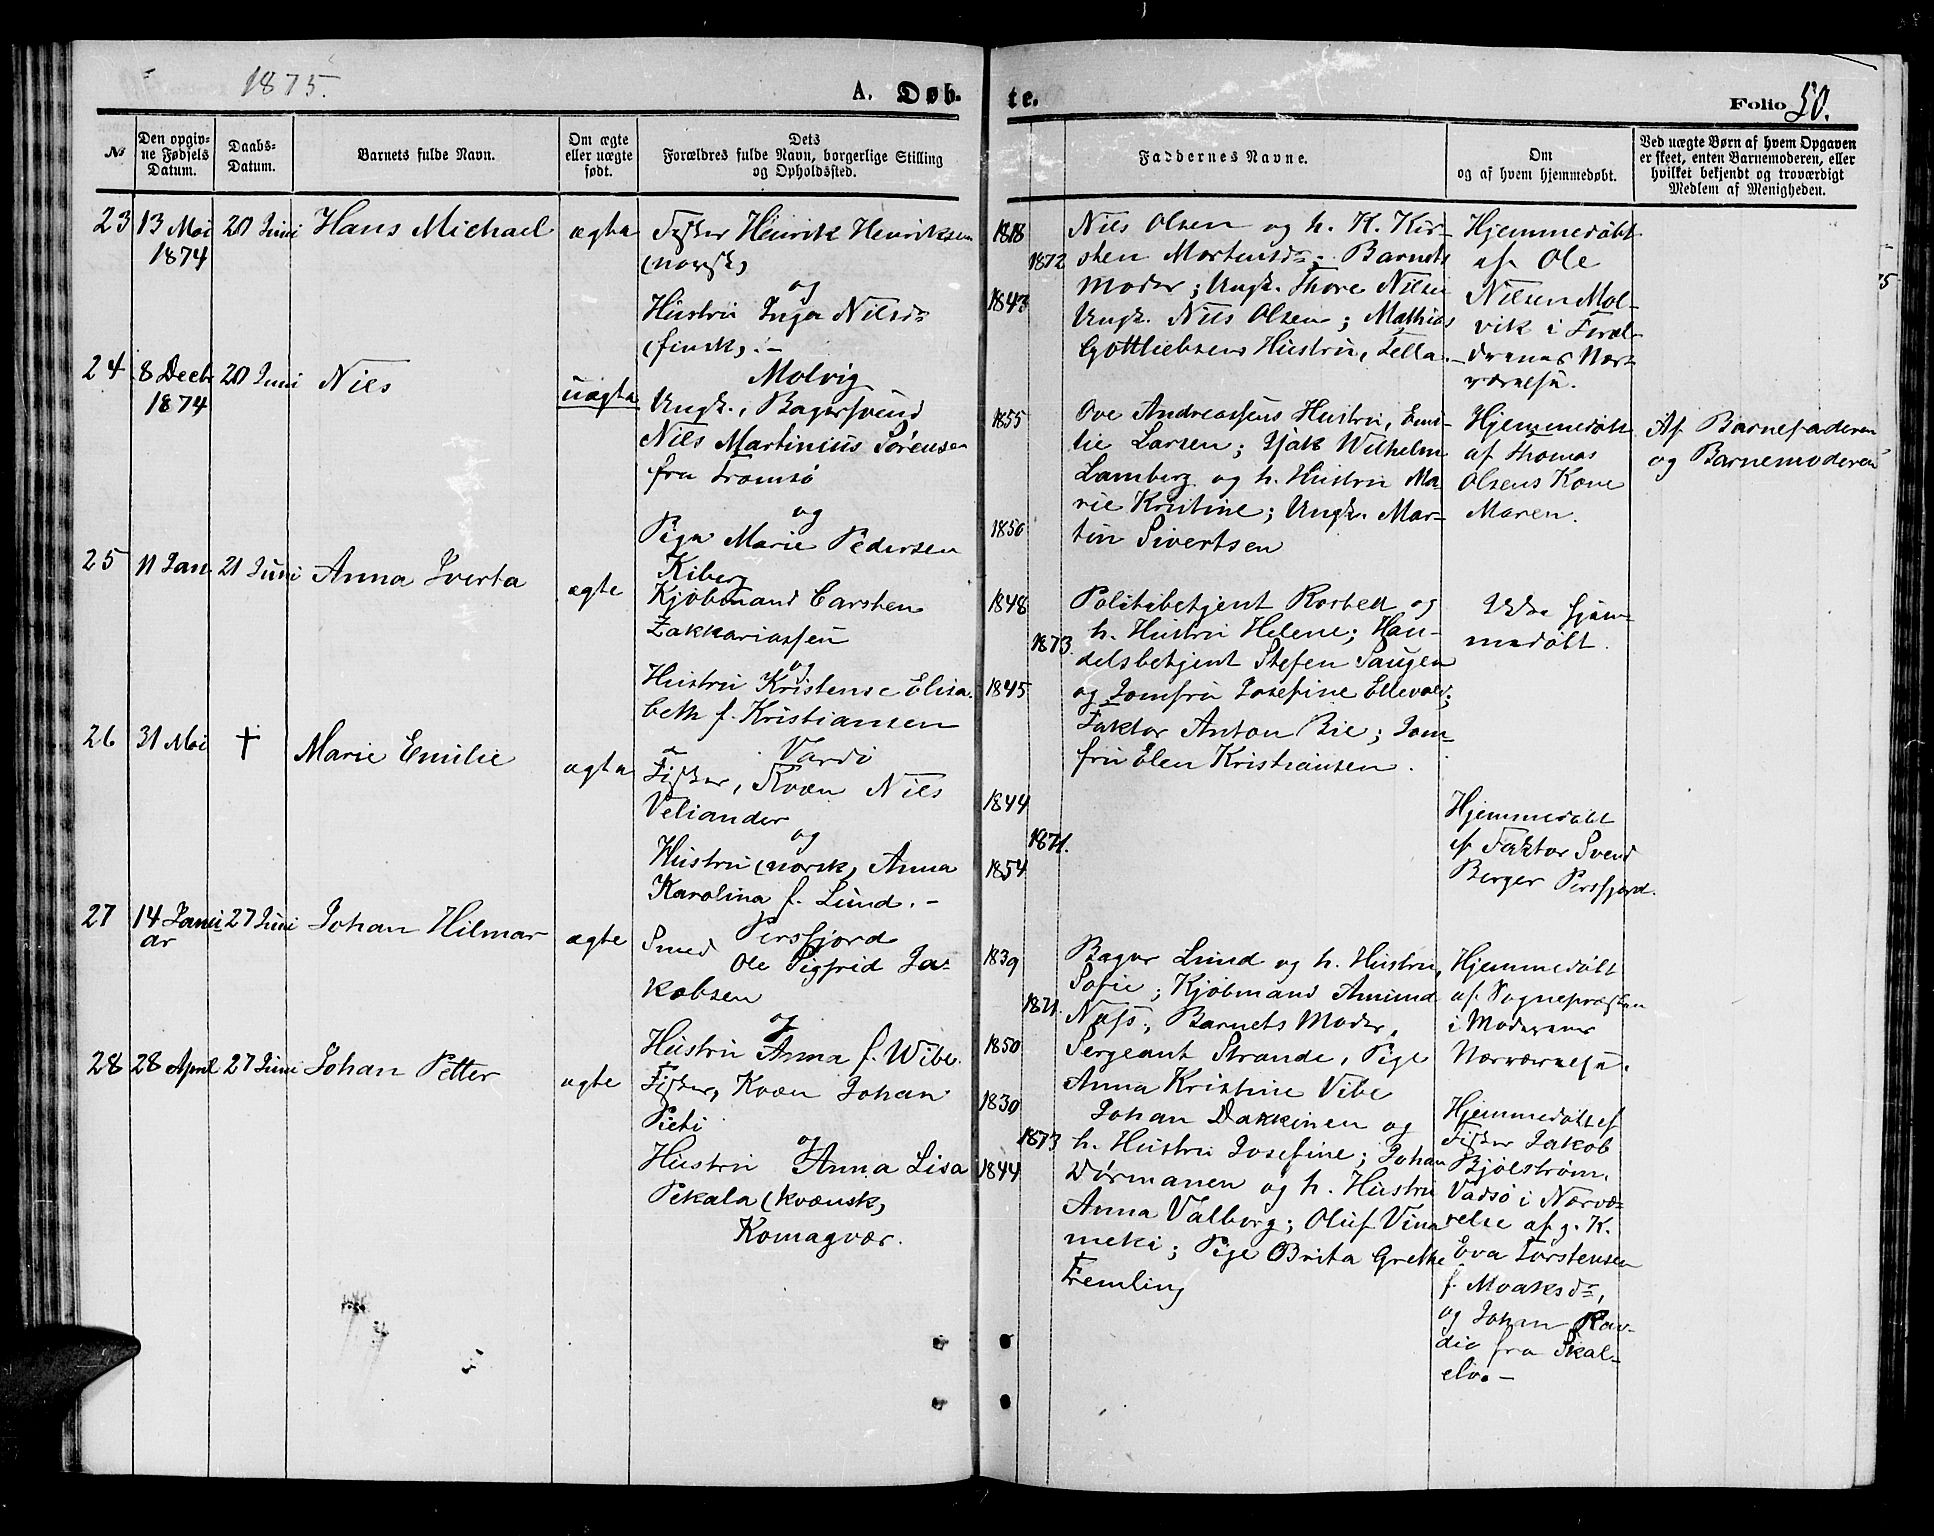 1875.
A. Døb-
te.
Folio 50.
№
Den opgiv-
ne Fødsels
Datum.
Daabs-
Datum.
Barnets fulde Navn.
Om ægte
eller uægte
født.
Dets
Forældres fulde Navn, borgerlige Stilling
og Opholdssted.
Faddernes Navne.
Om
og af hvem hjemmedøbt.
Ved uægte Børn af hvem Opgaven
er skeet, enten Barnemoderen, eller
hvilket bekjendt og troværdigt
Medlem af Menigheden.
23
13 Mai
1874
20 Juni
Hans Michael
ægte
Fisker Henrik Henriksen
(norsk)
og
Hustru Inga Nilsdr
(finsk). -
Molvig
1818
1872
1843
Nils Olsen og h. K. Kir-
sten Mortensdr; Barnets
Moder; Ungk. Thore Nilsen
Ungk. Nils Olsen; Mathias
Gottliebsens Hustru, Tella.
Hjemmedøbt
af Ole
Nilsen Mol-
vik i Foræl-
drenes Nær-
værelse.
24
8 Decbr
1874
20 Juni
Nils
uægte
Ungk., Bagersvend
Nils Martinius Sørensen
fra Tromsø
og
Pige Marie Pedersen
Kiberg
1855
1850
Ove Andreassens Hustru, Emi-
lie Larsen; Isak Wilhelm
Lamberg og h. Hustru Ma-
rie Kristine; Ungk. Mar-
tin Sivertsen
Hjemmedøbt
af Thomas
Olsens Kone
Maren.
Af Barnefaderen
og Barnemoderen
25
11 Jan
21 Juni
Anna Iverta
ægte
Kjøbmand Carsten
Zakkariassen
og
Hustru Kristense Elisa-
beth f. Kristiansen
Vardø
1848
1873.
1845
Politibetjent Rosted og
h. Hustru Helene; Han-
delsbetjent Stefen Saugen
og Jomfru Josefine Ellevold;
Faktor Anton Bie; Jom-
fru Elen Kristiansen.
Ikke hjem-
medøbt.
26
31 Mai
†
Marie Emilie
ægte
Fisker, Kvæn Nils
Veliander
og
Hustru (norsk) Anna
Karolina f. Lund. -
Persfjord
1844
1871.
1854
Hjemmedøbt
af Faktor Svend
Berger Persfjord.
27
14 Janu-
ar
27 Juni
Johan Hilmar
ægte
Smed
Ole Sigfrid Ja-
kobsen
og
Hustru Anna f. Wibe.
1839
1871.
1850
Bager Lund og h. Hustru,
Sofie; Kjøbmand Amund
Næss, Barnets Moder,
Sergeant Strande, Pige
Anna Kristine Vibe
Hjemmedøbt
af Sognepræsten
i Moderens
Nærværelse.
28
28 April
27 Juni
Johan Petter
ægte
Fisker, Kvæn Johan
Pieti
og
Hustru Anna Lisa
Pekala (kvænsk)
Komagvær.
1830
1873
1844
Johan Dakkinen og
h. Hustru Josefine; Johan
Dørmanen og h. Hustru
Anna Valborg; Oluf Vina-
meki; Pige Brita Grethe
Fremling
Hjemmedøbt af
Fisker Jakob
Bjølstrøm,
Vadsø i Nærvæ-
relse af g. K.
Eva Torstensen
f. Moaksdr,
og Johan Rav-
dio fra Skal-
elv. -